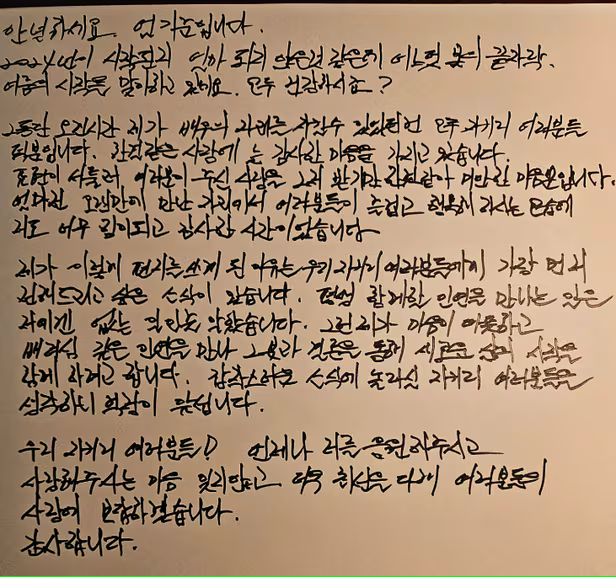 안녕하세요. 엄기준입니다.
2024년이 시작된지 얼마 되지 않은것 같은데 어느덧 봄의 끝자락.
여름의 시작을 맞이하고 있네요. 모두 건강하시죠?
그동안 오랜시간 제가 배우의 자리를 지킬수 있었던건 모두 지키리 여러분들
덕분입니다. 한결같은 사랑에 늘 감사한 마음을 가지고 있습니다.
표현이 서툴러 여러분이 주신 사랑을 그저 받기만 한것같아 미안한 마음뿐입니다.
얼마전 오랜만에 만난 자리에서 여러분들이 즐겁고 행복해 하시는 모습에
저도 너무 힘이되고 감사한 시간이었습니다.
제가 이렇게 편지를쓰게 된 이유는 우리 지키리 여러분들에게 가장 먼저
전해드리고 싶은 소식이 있습니다. 평생 함께할 인연을 만나는 일은
저에겐 없는 일인줄 알았습니다. 그런 저와 마음이 따뜻하고
배려심 깊은 인연을 만나 그분과 결혼을 통해 새로운 삶의 시작을
함께 하려고 합니다. 갑작스러운 소식에 놀라실 지키리 여러분들을
생각하니 떨림이 앞섭니다.
우리 지키리 여러분들! 언제나 저를 응원해주시고
사랑해주시는 마음 잊지않고 더욱 최선을 다해 여러분들의
사랑에 보답하겠습니다.
감사합니다.